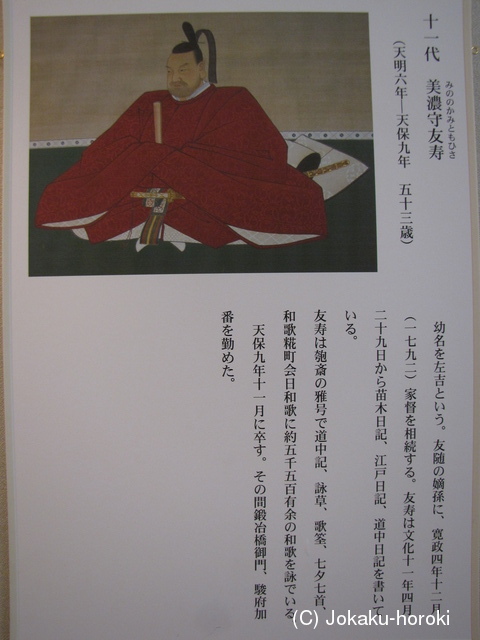 十一代 美濃守友寿
みののかみともひさ
(天明六年―天保九年 五十三歳)
幼名を左吉という。友随の嫡孫に、寛政四年十二月
(一七九二)家督を相続する。友寿は文化十一年四月
二十九日から苗木日記、江戸日記、道中日記を書いて
いる。
友寿は匏斎の雅号で道中記、詠草、歌筌、七夕七首、
和歌糀町会日和歌に約五千五百有余の和歌を詠でいる
天保九年十一月に卒す。その間鍛冶橋御門、駿府加
番を勤めた。
(C) Jokaku-horoki